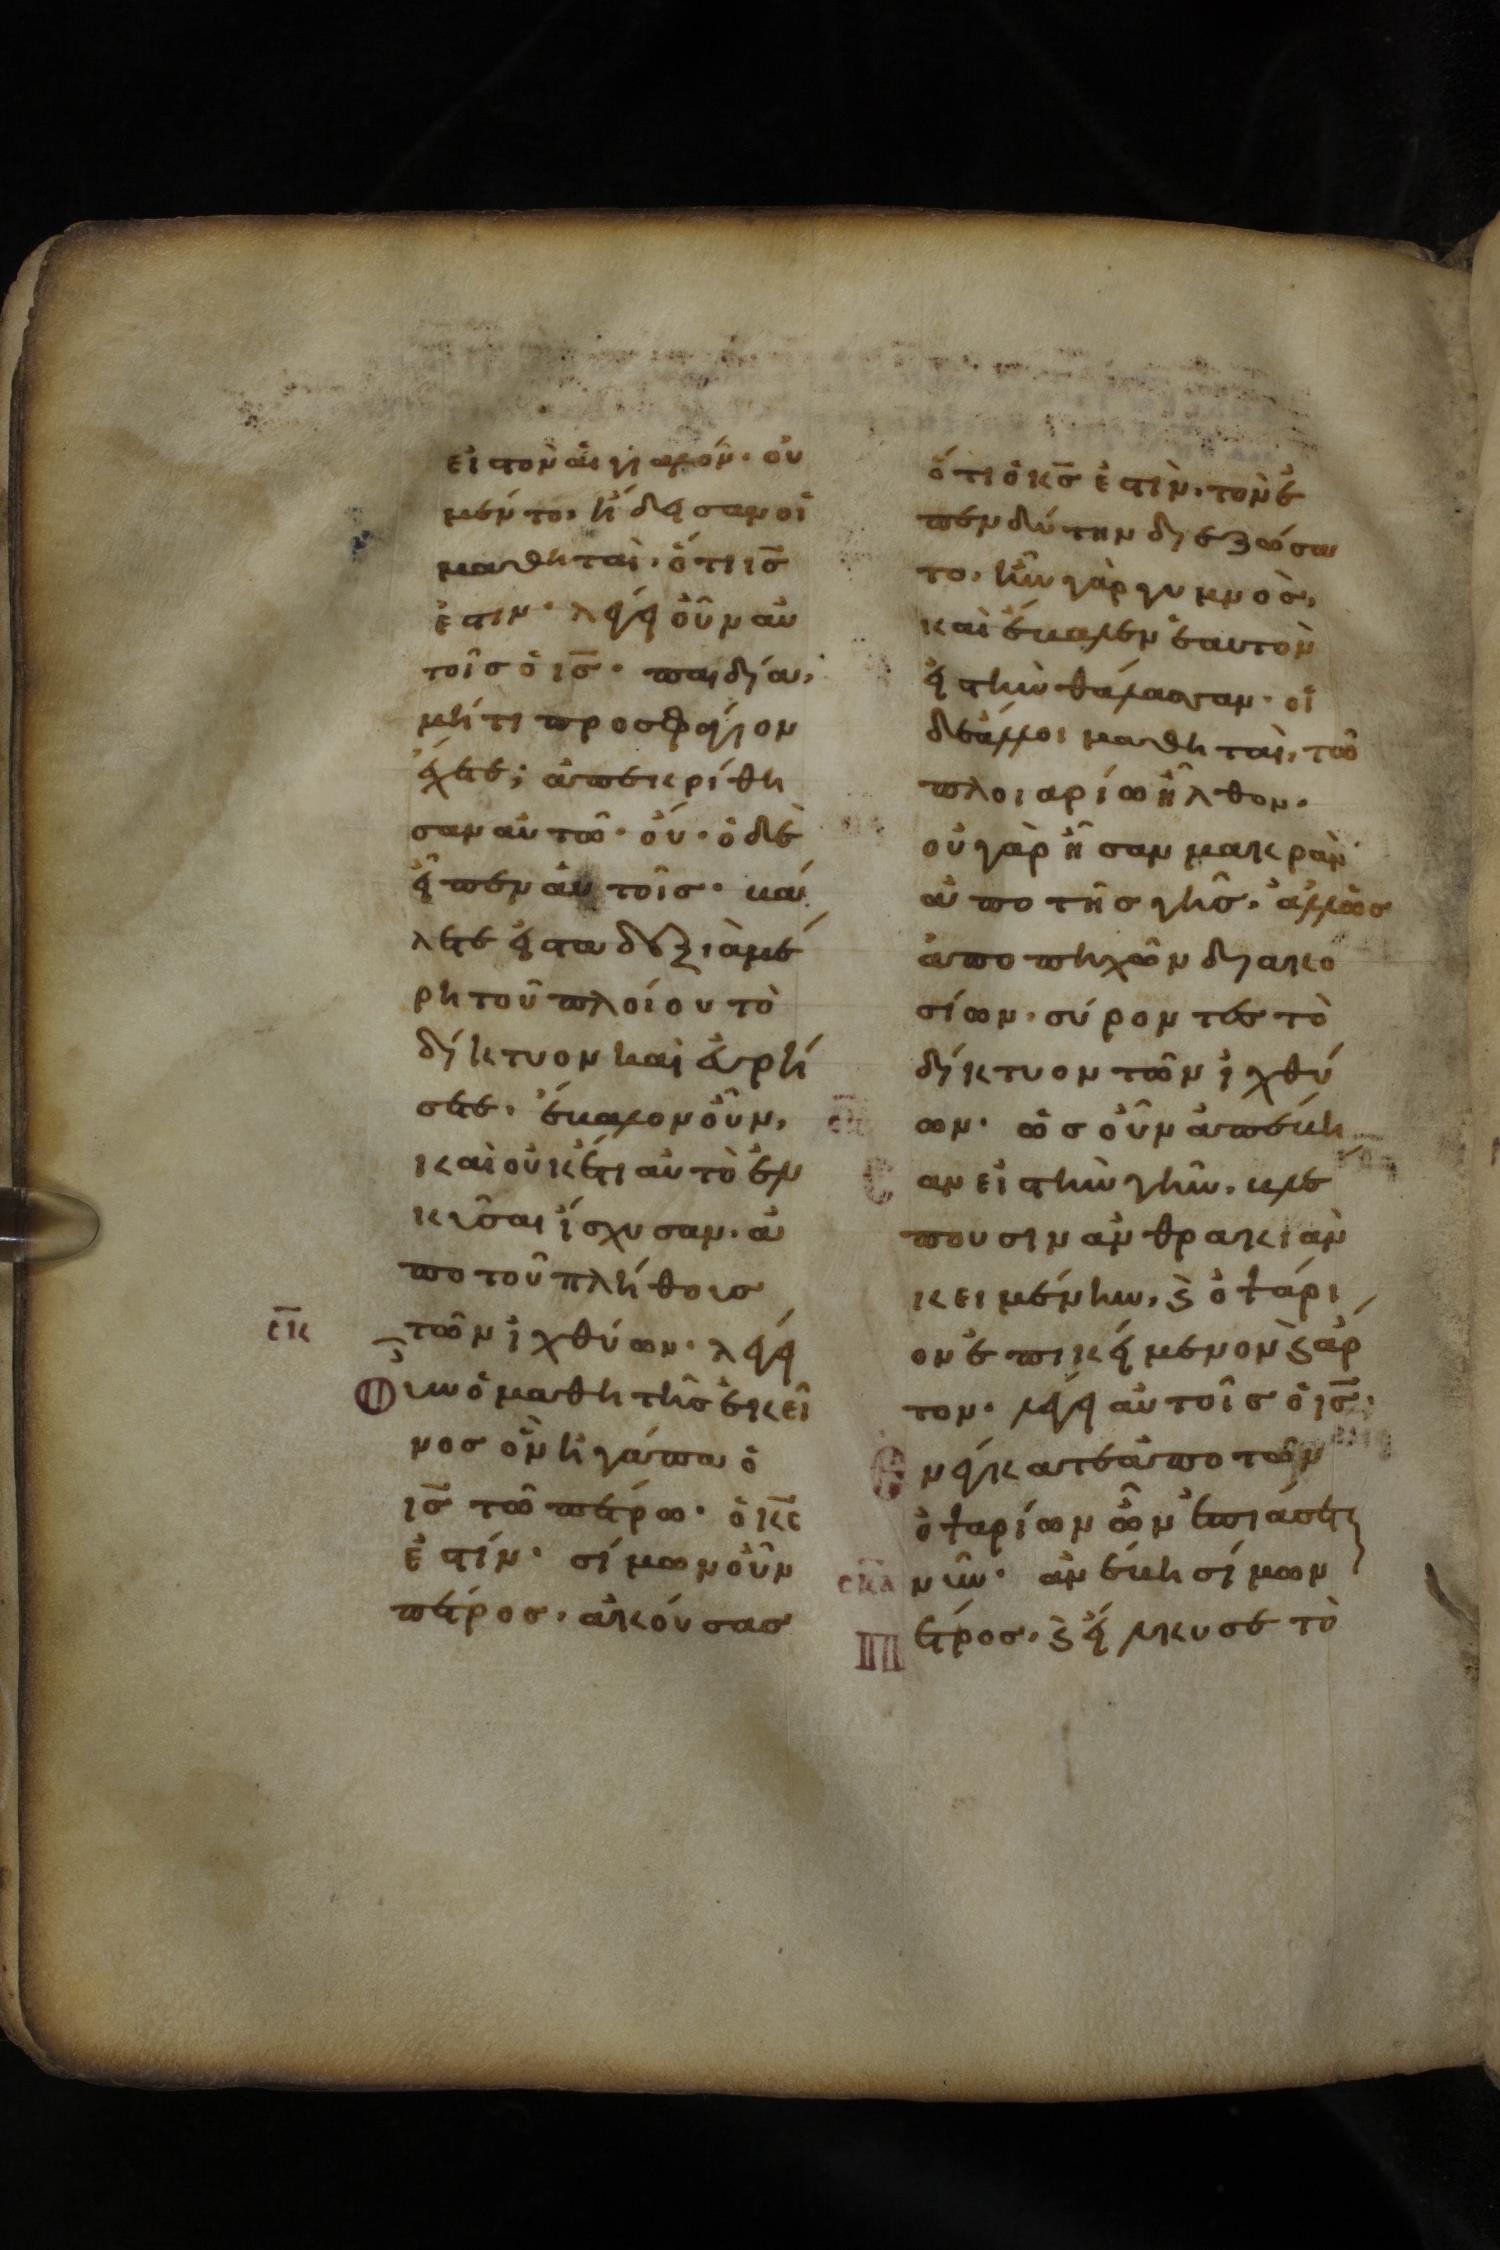 εἰς τὸν αἰγιαλόν· οὐ
μέντοι ἤδησαν οἱ
μαθηταὶ, ὅτι ις̅
ἐστιν· λέγει οὖν αὐ
τοῖσ ὁ ις̅· παιδία,
μή τι προσφάγιον
ἔχετε; ἀπεκρίθη
σαν αὐτῶ· οὔ· ὁ δὲ
εἶπεν αὐτοῖσ· βάλ
λετε εἰς τὰ δεξιὰ μέ
ρη τοῦ πλοίου τὸ
δίκτυον καὶ εὑρή
σετε. ἔβαλον οὖν,
καὶ οὐκέτι αὐτὸ ἑλ
κῦσαι ἴσχυσαν. ἀ
πο τοῦ πλήθουσ
τῶν ἰχθύων· λέγει
σκ̅
οὖν ὁ μαθητὴσ ἐκεῖ
νοσ ὃν ἠγάπα ὁ
ισ̅ τῶ πέτρω· ὁ κς̅
ἐστίν· σίμων οὖν
πέτροσ, ἀκούσασ
ὅτι ὁ κσ̅ ἐστὶν, τὸν ἐ
πενδύτην διεζώσα
το, ἦν γὰρ γυμνὸσ,
καὶ ἔβαλεν ἑαυτὸν
εἰς τὴν θάλασσαν· οἱ
δὲ ἄλλοι μαθηταὶ, τῶ
πλοιαρίω ἦλθον.
οὐ γὰρ ἦσαν μακρὰν
ἀπο τῆσ γῆσ, ἀλλ' ὡσ
ἀπο πηχῶν διακο
σίων, σύροντεσ τὸ
δίκτυον τῶν ἰχθύ
ων· ὡσ οὖν ἀπέβη
σαν εἰς τὴν γῆν, βλέ
πουσιν ἀνθρακιὰν
κειμένην, ϗ ὀψάρι
ον ἐπικείμενον ϗ ἄρ
τον· λέγει αὐτοῖσ ὁ ισ̅·
ἐνέγκατε ἀπο τῶν
ὀψαρίων ὧν ἐπιάσατε
νῦν· ἀνέβη σίμων
σκα̅
πέτροσ, ϗ εἵλκυσε τὸ